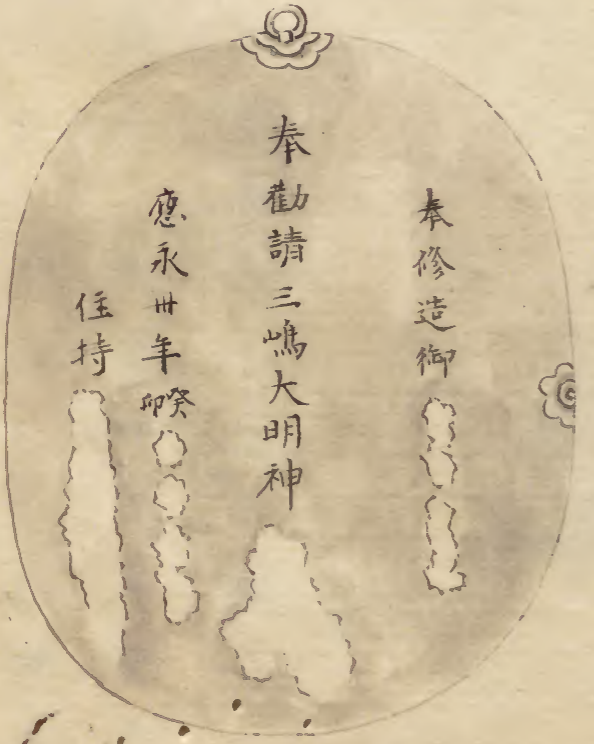 奉修造御
奉勸請三嶋大明神
應永卅年癸卯
住持